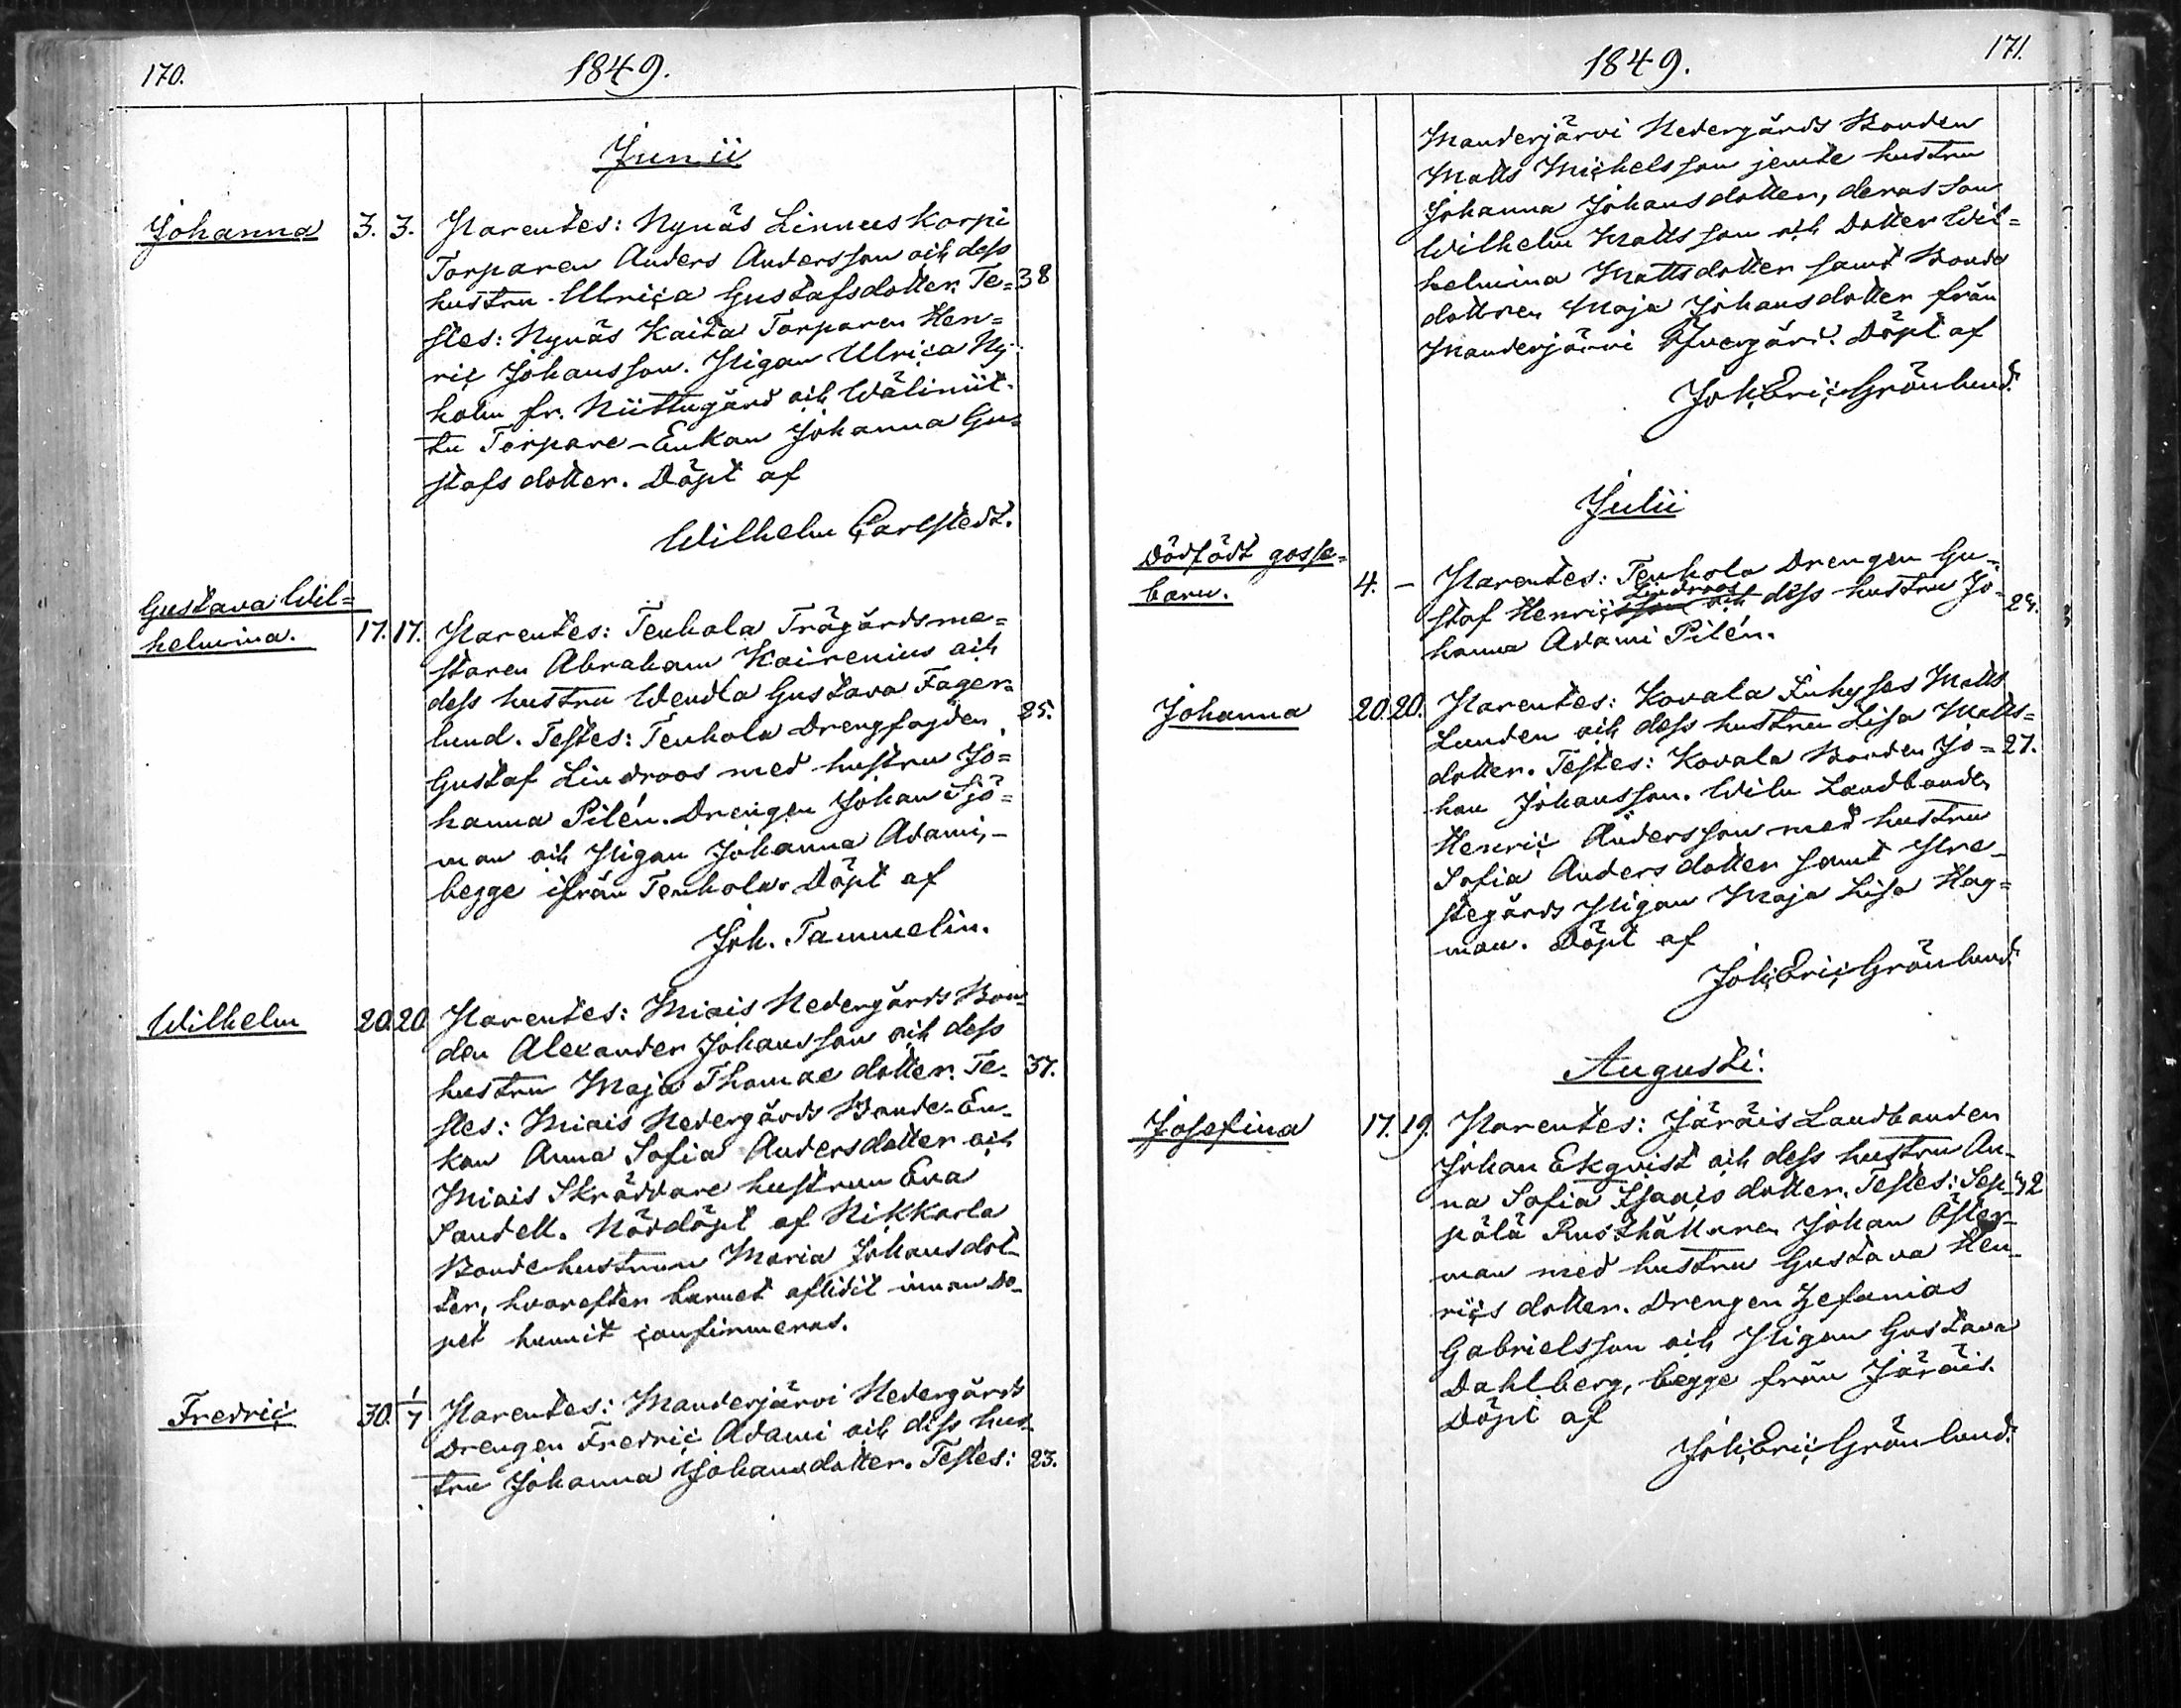 170.
1849.
Junii
Johanna 3. 3. Parentes: Nynäs Linnus Korpi
Torparen Anders Andersson och dess
hustru Ulrica Gustafsdotter. Te= 38
stes: Nynäs Kaita Torparen Hen=
ric Johansson. Pigan Ulrica Ny=
holm fr. Niittugård och Wäliniit=
tu Torpare-Enkan Johanna Gu=
stafsdotter. Döpt af
Wilhelm Carlstedt.
Gustava Wil=
helmina. 17. 17. Parentes: Tenhola Trägårdsme=
staren Abraham Kairenius och
dess hustru Wendla Gustava Fager=
lund. Testes: Tenhola Drengfogden 25.
Gustaf Lindroos med hustru Jo=
hanna Pilén. Drengen Johan Sjö=
man och Pigan Johanna Adami,
begge ifrån Tenhola. Döpt af
Joh. Tammelin.
Wilhelm 20. 20. Parentes: Miais Nedergårds Bon=
den Alexander Johansson och dess
hustru Maja Thomae dotter. Te- 37.
stes: Miais Nedergårds Bonde-En-
kan Anna Sofia Andersdotter och
Miais Skräddare hustrun Eva
Sandell. Nöddöpt af Nikkarla
Bondehustrun Maria Johansdot-
ter, hvarefter barnet aflidit innan do-
pet hunnit confirmeras.
Fredric 30. 1/7 Parentes: Manderjärvi Nedergårds
Drengen Fredric Adami och dess hus-
tru Johanna Johansdotter. Testes: 23.
1849.
171.
Manderjärvi Nedergårds Bonden
Matts Michelsson jemte hustru
Johanna Johansdotter, deras Son
Wilhelm Mattsson och Dotter Wil=
helmina Mattsdotter samt Bonde
dottren Maja Johansdotter från
Manderjärvi Öfvergård. Döpt af
Joh. Eric Grönlund.
Julii
Dödfödt gosse=
barn. 4. - Parentes: Tenhola Drengen Gu-
Lindroos
staf Henricsson och dess hustru Jo- 29.
hanna Adami Pilén.
Johanna 20. 20. Parentes: Kovala Inhyses Matts
Lunden och dess hustru Lisa Matts=
dotter. Testes: Kovala Bonden Jo= 27.
han Johansson. Wilu Landbonden
Henric Andersson med hustru
Sofia Anders dotter samt Pre-
stegårds Pigan Maja Lisa Hag=
man. Döpt af
Joh. Eric Grönlund.
Augusti.
Josefina 17. 19. Parentes: Järäis Landbonden
Johan Ekqvist och dess hustru An-
na Sofia Isaacs dotter. Testes: Sep- 32
pälä Rusthållaren Johan Öster-
man med hustru Gustava Hen-
rics dotter. Drengen Zefanias
Gabrielsson och Pigan Gustava
Dahlberg, begge från Järäis.
Döpt af
Joh. Eric Grönlund.